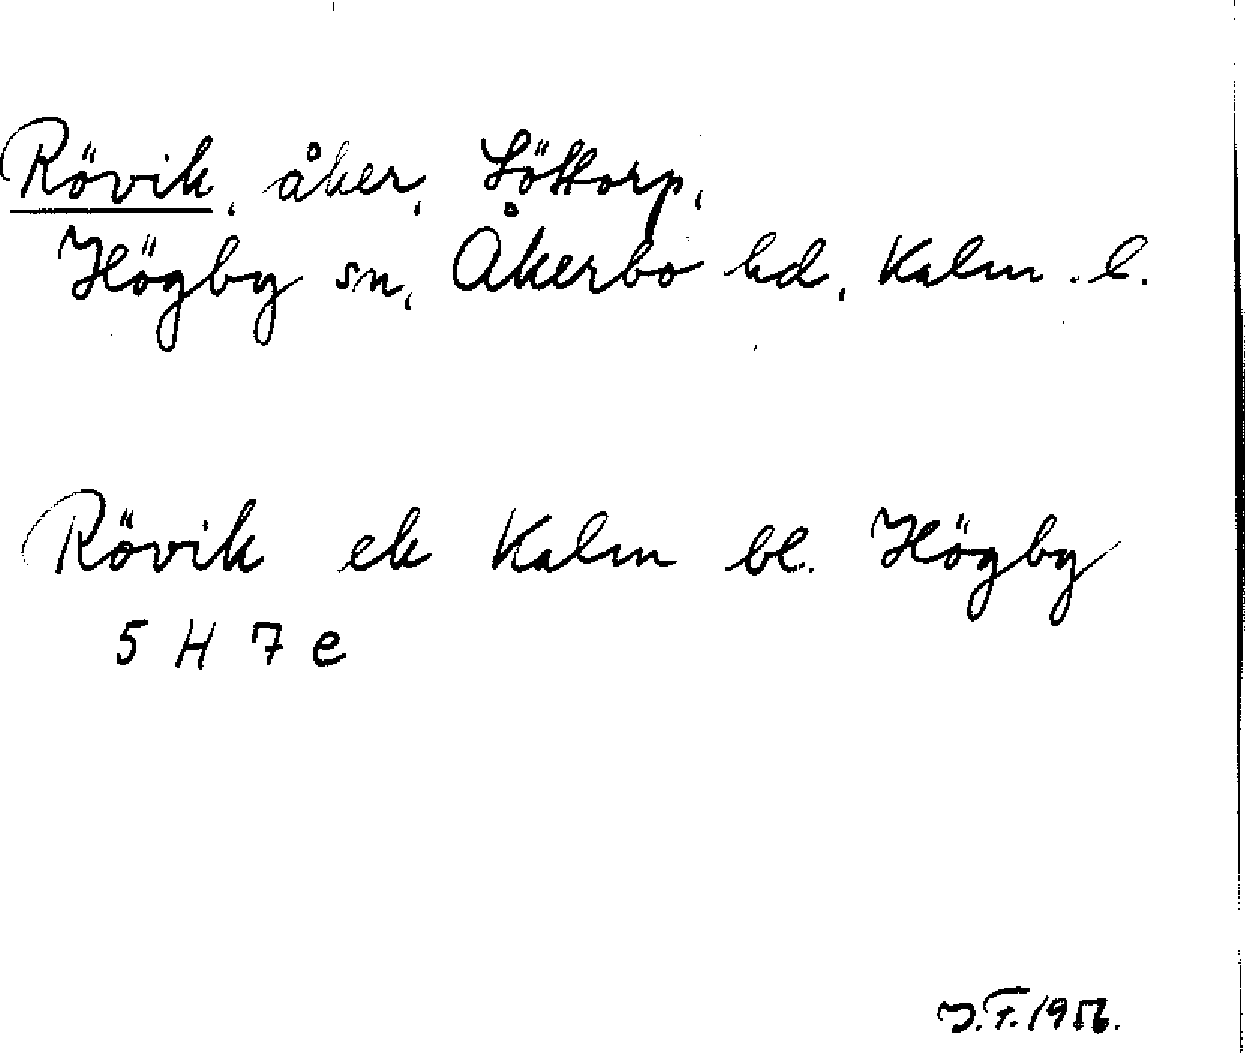 Rövik, åker, Löttorp,
Högby sn, Åkerbo hd, Kalm. l.
Rövik ek Kalm bl. Högby
5 H 7 e
J.F. 1956.